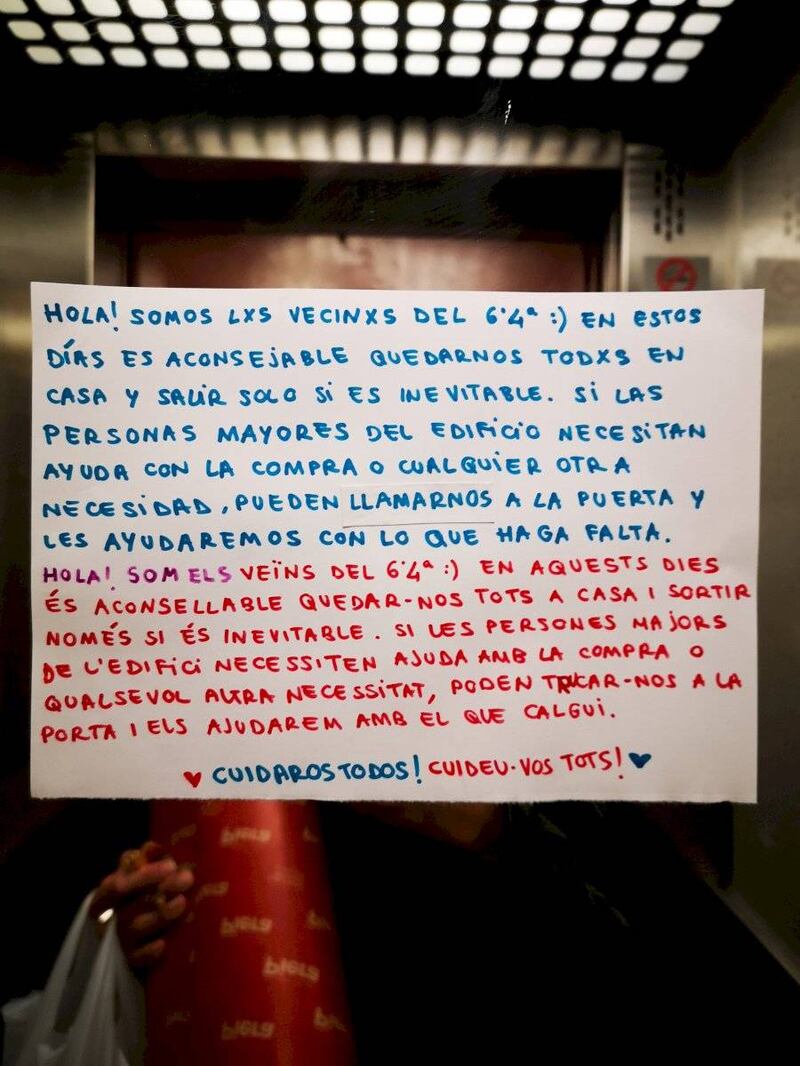 HOLA! SOMOS LXS VECINXS DEL 6º4ª :) EN ESTOS
DÍAS ES ACONSEJABLE QUEDARNOS TODXS EN
CASA Y SALIR SOLO SI ES INEVITABLE. SI LAS
PERSONAS MAYORES DEL EDIFICIO NECESITAN
AYUDA CON LA COMPRA O CUALQUIER OTRA
NECESIDAD, PUEDEN LLAMARNOS A LA PUERTA Y
LES AYUDAREMOS CON LO QUE HAGA FALTA.
HOLA! SOM ELS VEÏNS DEL 6º4ª :) EN AQUESTS DIES
ÉS ACONSELLABLE QUEDAR-NOS TOTS A CASA I SORTIR
NOMÉS SI ÉS INEVITABLE. SI LES PERSONES MAJORS
DE L'EDIFICI NECESSITEN AJUDA AMB LA COMPRA O
QUALSEVOL ALTRA NECESSITAT, PODEN TRUCAR-NOS A LA
PORTA I ELS AJUDAREM AMB EL QUE CALGUI.
♥ CUIDAROS TODOS! CUIDEU-VOS TOTS! ♥